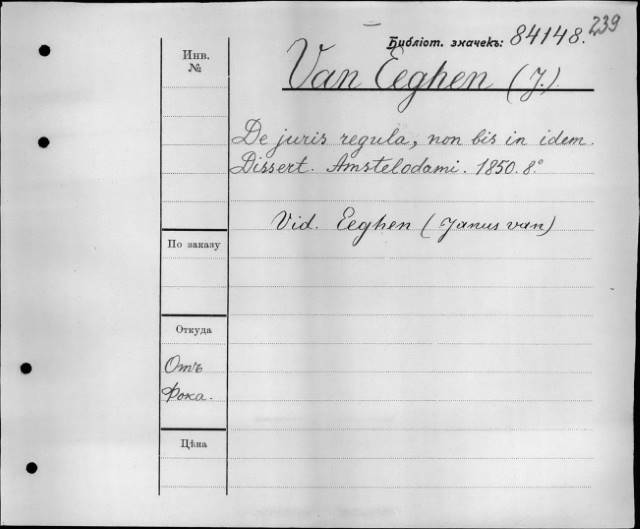 239
Библіот. значекъ: 84148.
Инв.
№
Van Eeghen (J.)
De juris regula, non bis in idem.
Dissert. Amstelodami. 1850. 8.°
Vid. Eeghen (Janus van)
По заказу
Откуда
Отъ
Фока.
Цѣна